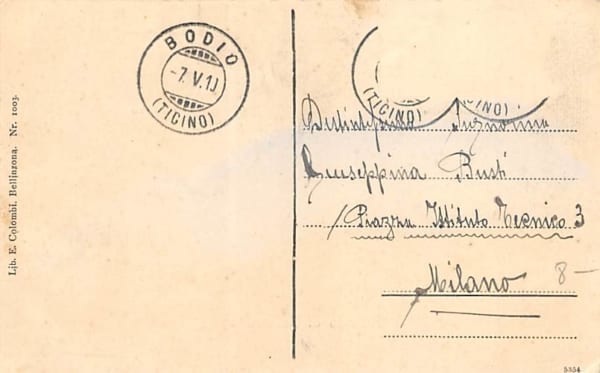 BODIO
-7.V.1
(TICINO)
(TICINO)
CINO)
Distintissima Signorina
Giuseppina Busti
Piazza Istituto Tecnico 3
Milano
8-
Lib. E. Colombi, Bellinzona. Nr. 1003.
5354